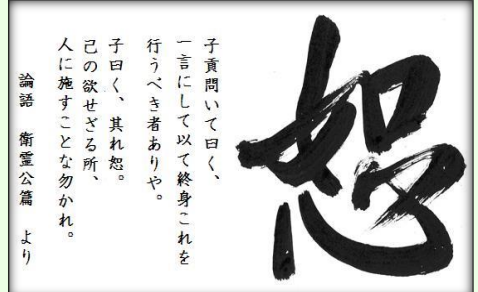 恕
子貢問いて曰く、
一言にして以て終身これを
行うべき者ありや。
子曰く、其れ恕。
己の欲せざる所、
人に施すことな勿かれ。
論語 衛霊公篇 より